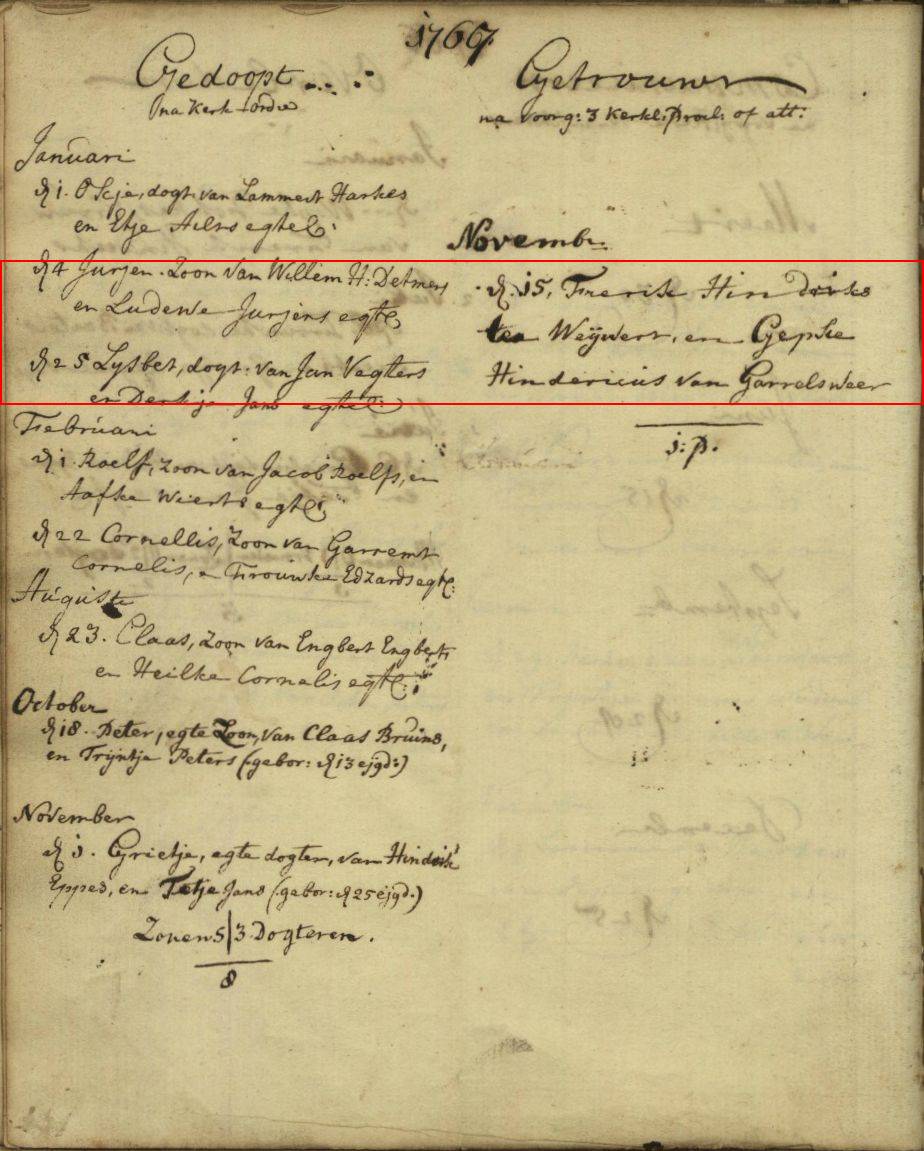 1767
Gedoopt
na Kerk-ordre
Januari
d 1. Okje, dogt. van Lammert Harkes
en Etje egtel.
d 4 Jurjen. Zoon van Willem H: Detmers
en Ludewe Jurjens egtel
d 25 Lysbet, dogt: van Jan Vegters
en Derkje Jans egtel:
Februari
d 1. Roelf, zoon van Jacob Roelfs, en
Aafke Wierts egtel:
d 22 Cornellis, Zoon van Garremt
Cornelis, en Trouwke Edzards egtel:
Auguste
d 23. Claas, zoon van Engbert Engberts
en Heilke Cornelis egtel:
October
d 18. Peter, egte Zoon, van Claas Bruins,
en Trijntje Peters (gebor: d 13 ejgd:)
November
d 1. Grietje, egte dogter, van Hindrik
Eppes, en Tetje Jans (gebor: d 25 ejgd.)
Zonen 5 | 3 Dogteren.
8
Getrouwt
na voorg: 3 Kerkl: Procl: of att:
Novemb:
d. 15. Frerik Hindriks
ten Weijwert, en Gepke
Hindericus van Garrelsweer
1: p.